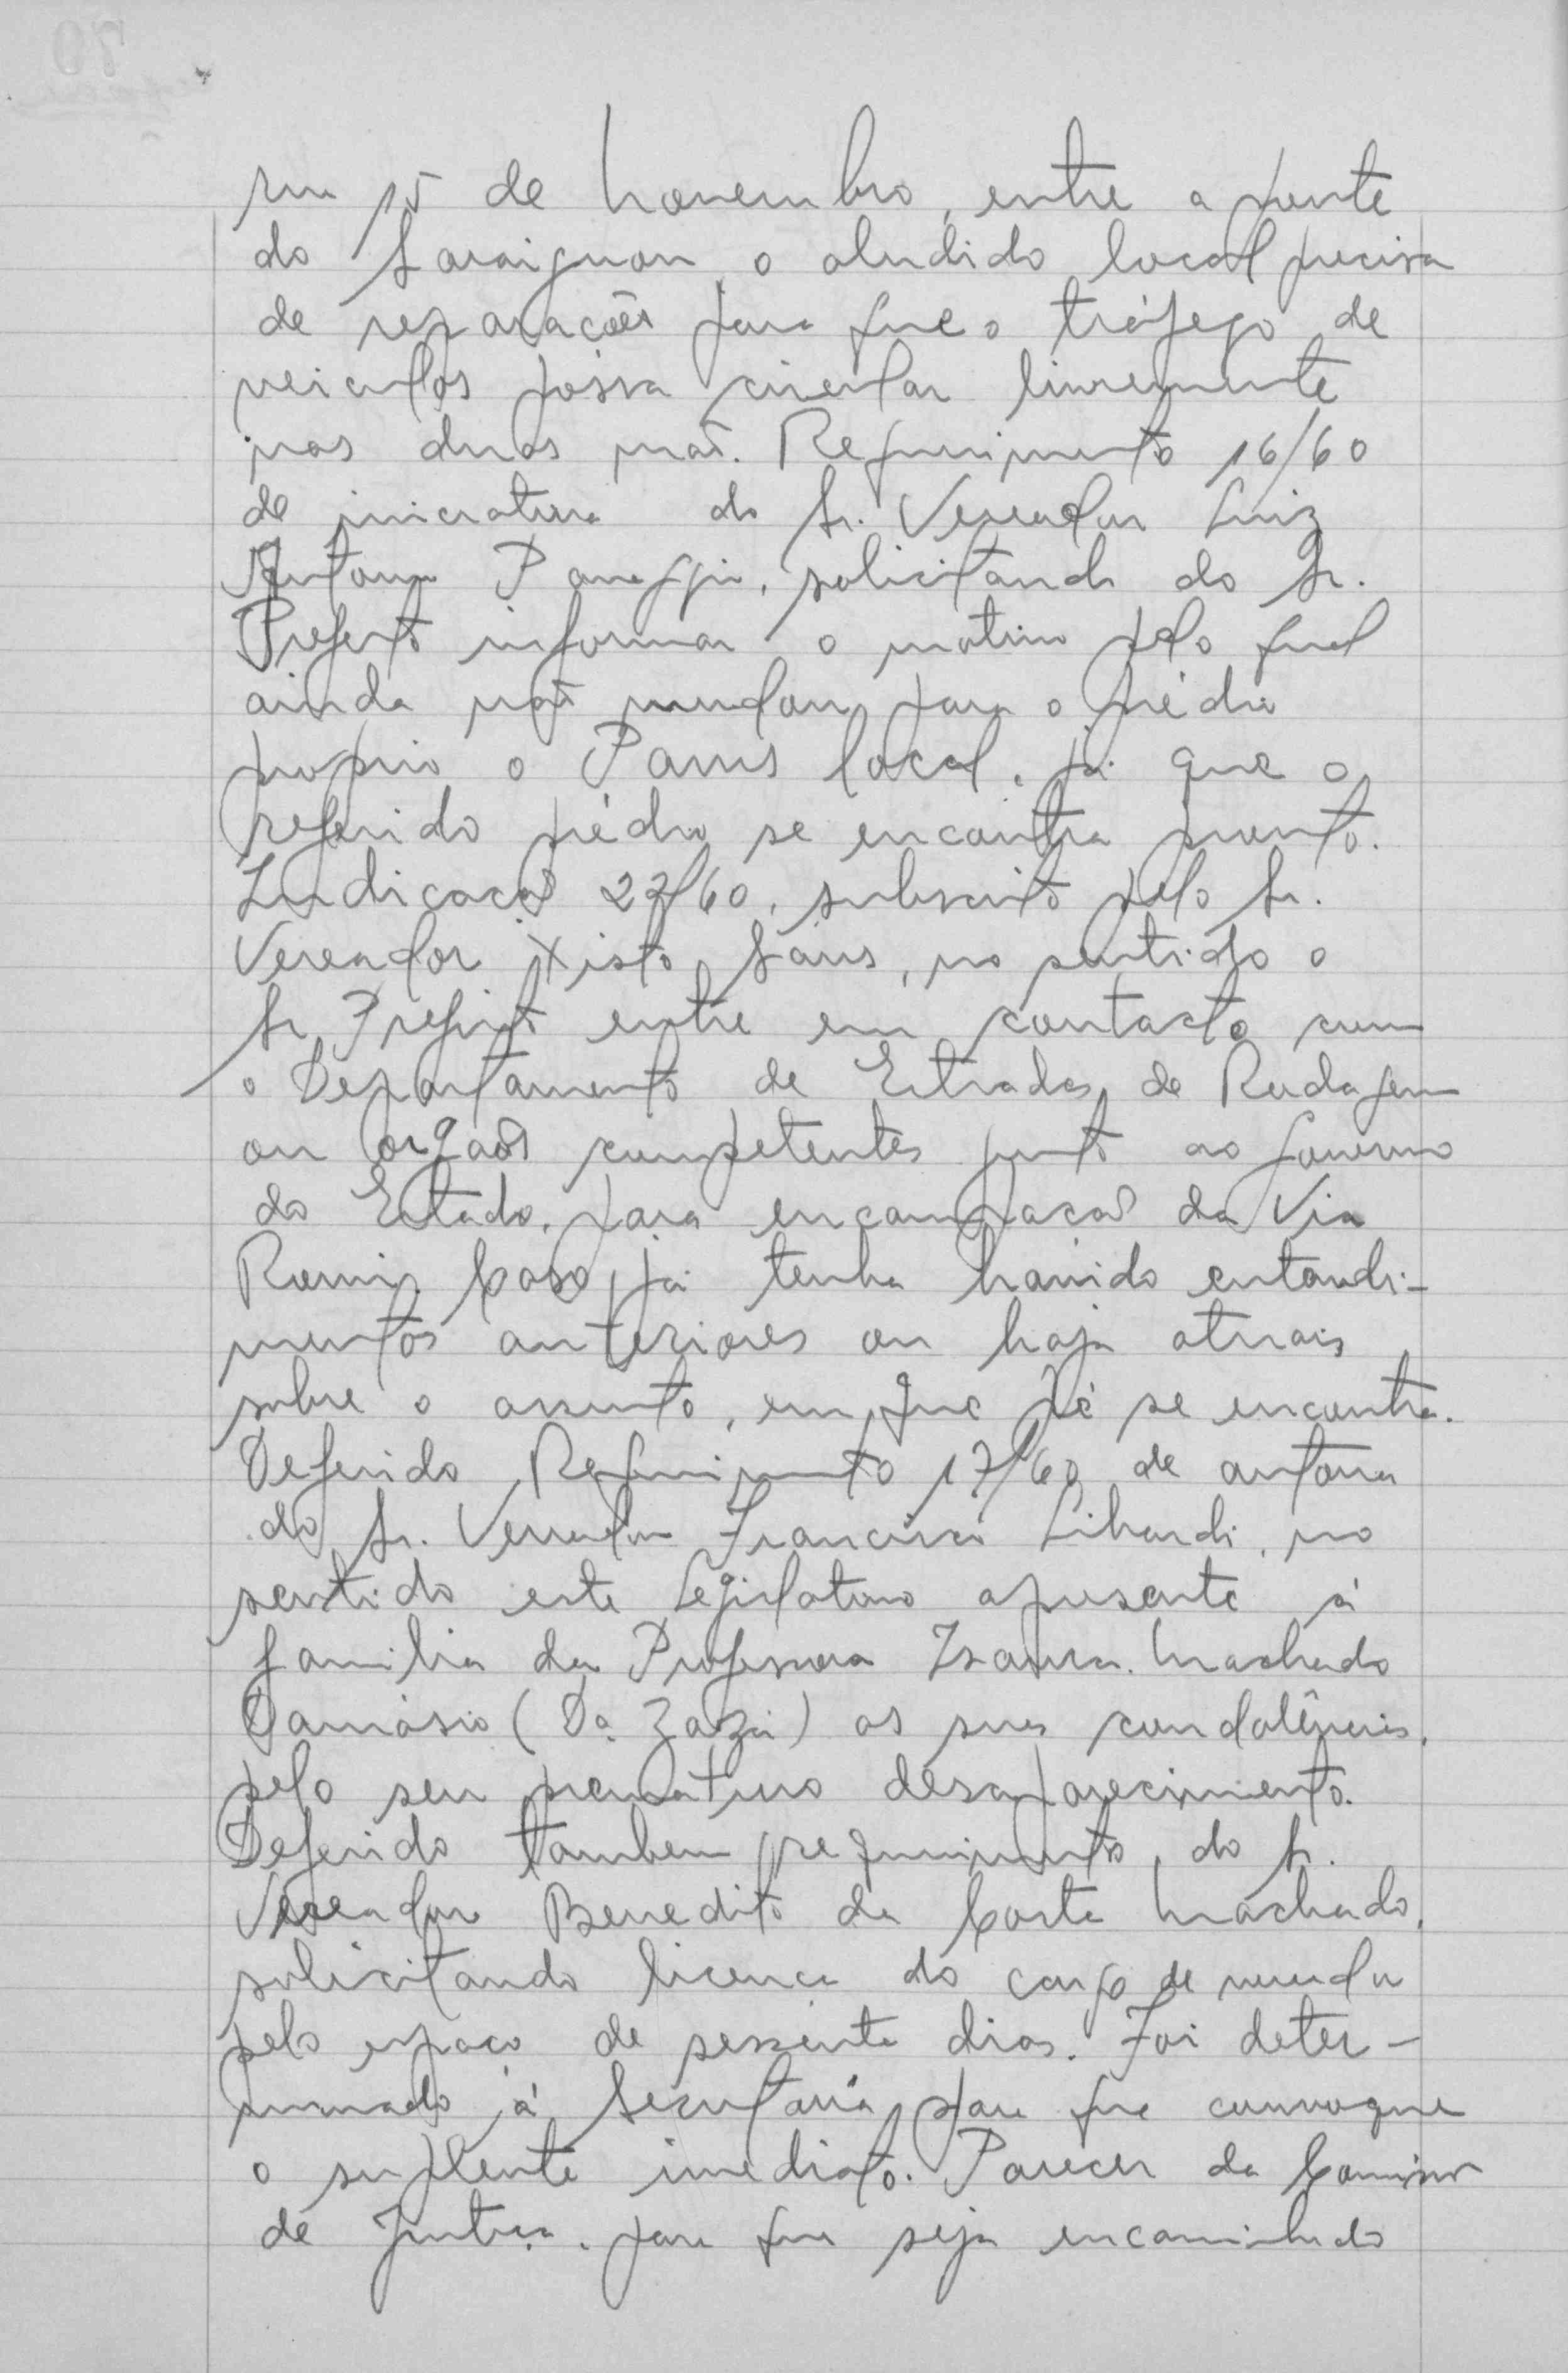 rua 15 de Novembro, entre a ponte
do Saraiguau o aludido local precisa
de reparações para que o tráfego de
veiculos possa circular livremente
nas duas mãos. Requerimento 16/60
de iniciativa do Sr. Vereador Luiz
Antonio Panaggio, solicitando do Sr.
Prefeito informar o motivo pelo qual
ainda não mudou para o prédio
proprio o Pams local, já que o
referido prédio se encontra pronto.
Indicação 22/60, subscrito pelo Sr.
Vereador Xisto Sans, no sentido o
Sr. Prefeito entre em contacto com
o Departamento de Estradas de Rodagem
ou orgãos competentes junto ao Governo
do Estado, para encampação da Via
Romis. Caso já tenha havido entandi-
mentos anteriores ou haja atuais
sobre o assunto, em que pé se encontra.
Deferido Requerimento 17/60 de autoria
do Sr. Vereador Francisco Libardi, no
sentido este Legislativo apresente à
familia da Professora Isaura Machado
Damásio (Da. Zazá) as suas condolências,
pelo seu prematuro desaparecimento.
Deferido tambem requerimento, do Sr.
Vereador Benedito da Costa Machado,
solicitando licença do cargo de vereador
pelo espaço de sessenta dias. Foi deter-
minado à Secretaria para que convoque
o suplente imediato. Parecer da Comissão
de Justiça, para que seja encaminhado